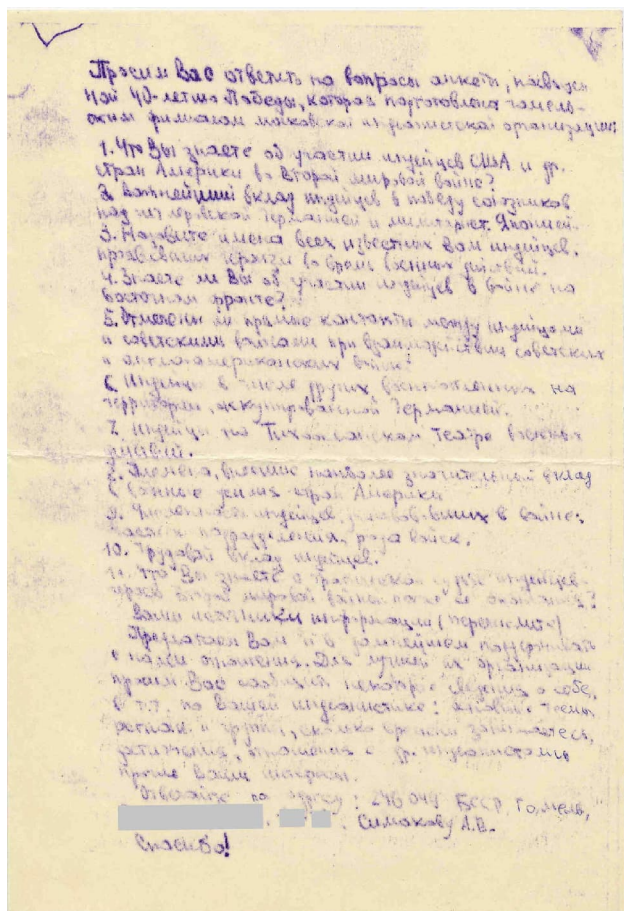 Просим Вас ответить на вопросы анкеты, посвящён
ной 40-летию Победы, которая подготовлена гомель-
ским филиалом московской индеанистской организации:
1. Что Вы знаете об участии индейцев США и др.
стран Америки во Второй мировой войне?
2. Важнейший вклад индейцев в победу союзников
над гитлеровской Германией и милитарист. Японией.
3. Назовите имена всех известных Вам индейцев,
проявивших героизм во время военных действий.
4. Знаете ли Вы об участии индейцев в войне на
восточном фронте?
5. Отмечены ли прямые контакты между индейцами
и советскими войсками при взаимодействии советских
и англо-американских войск?
6. Индейцы в числе других военнопленных на
территории, оккупированной Германией.
7. Индейцы на Тихоокеанском театре военных
действий.
8. Племена, внесшие наиболее значительный вклад
в военные усилия стран Америки
9. Численность индейцев, участвовавших в войне;
подразделения, рода войск.
10. Трудовой вклад индейцев.
11. Что Вы знаете о трагической судьбе индейцев-
героев второй мировой войны после её окончания?
Ваши источники информации (перечислите)
Предлагаем Вам и в дальнейшем поддерживать
с нами отношения. Для лучшей их организации
просим Вас сообщить некоторые сведения о себе,
в т.ч. по Вашей индеанистике: основные темы,
регион и группы, сколько времени занимаетесь,
достижения, отношения с др. индеанистами
прочие Ваши интересы.
Отвечайте по адресу: 246049 БССР, Гомель,
Симакову А.В.
Спасибо!